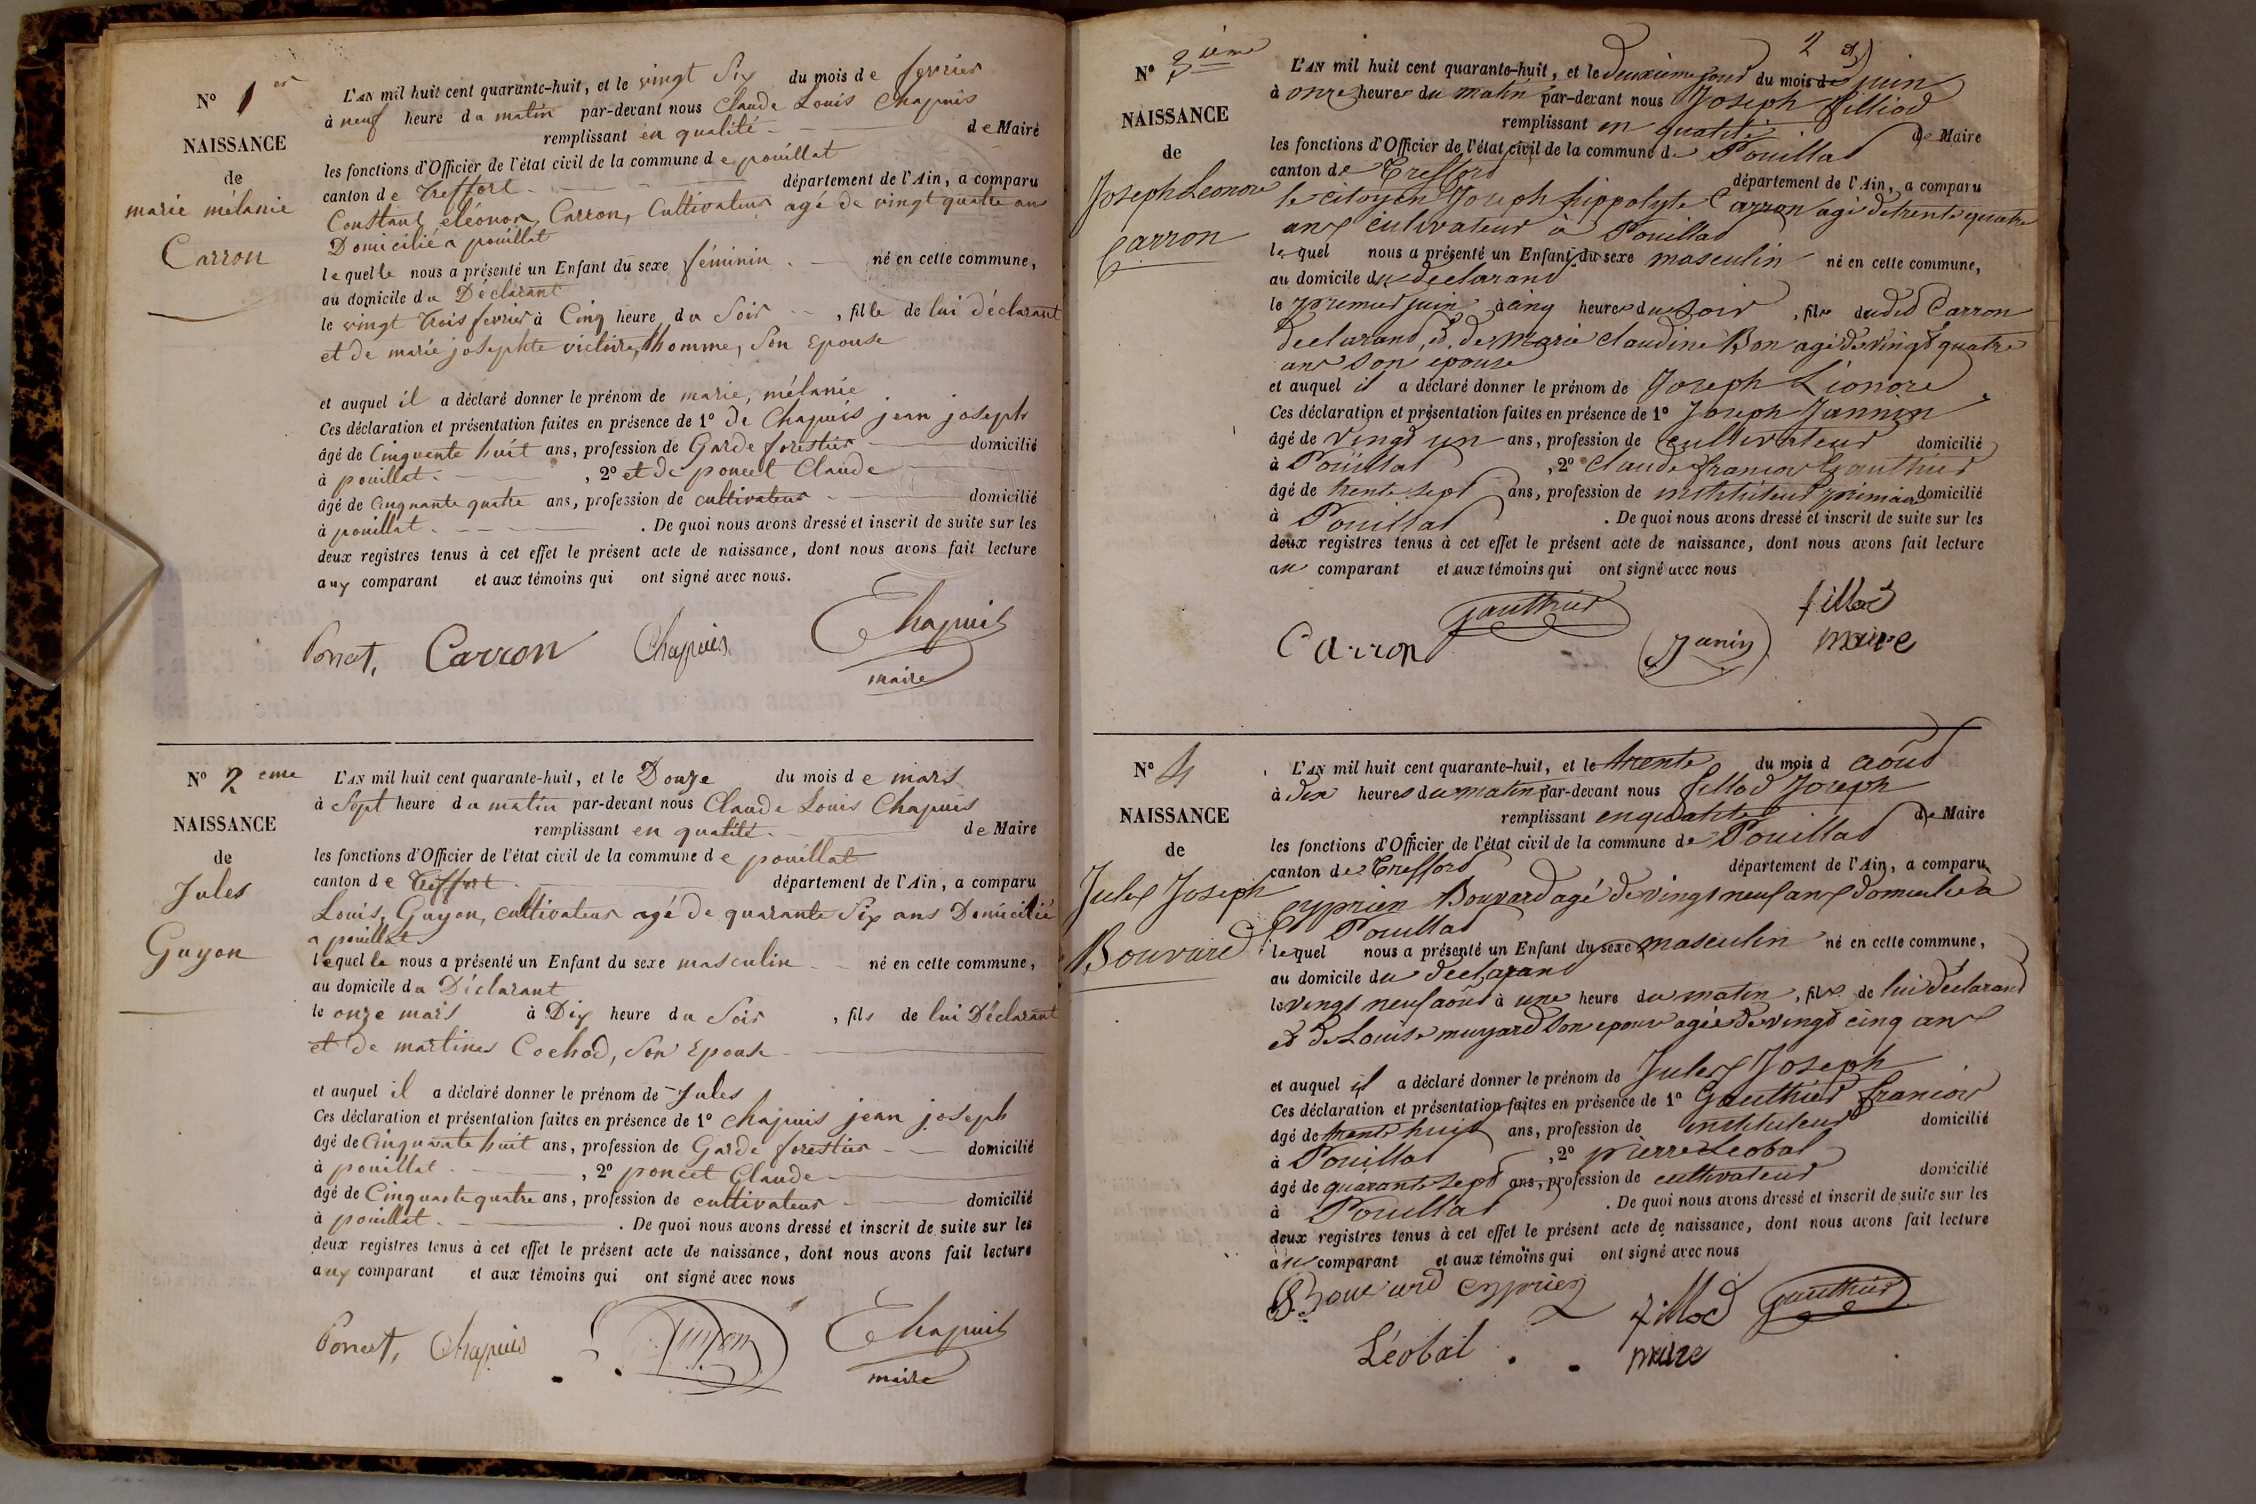 N° 1er
NAISSANCE
de
marie mélanie
Carron
L'AN mil huit cent quarante-huit, et le vingt Six du mois de fevrier
à neuf heure du matin par-devant nous Claude Louis Chapuis
remplissant en qualité de Maire
les fonctions d'Officier de l'état civil de la commune de pouillat
canton de Treffort département de l'Ain, a comparu
Constant eléonor, Carron, Cultivateur agé de vingt quatre ans
Domicilié a pouillat
lequelle nous a présenté un Enfant du sexe féminin né en cette commune,
au domicile du Déclarant
le vingt trois fevrier à Cinq heure du Soir, fille de lui déclarant
et de marie josephte victoire, thomme, Son Epouse
et auquel il a déclaré donner le prénom de marie, mélanie
Ces déclaration et présentation faites en présence de 1° de Chapuis jean joseph
âgé de Cinquente huit ans, profession de Garde forestier domicilié
à pouillat, 2° et de poncet Claude
âgé de Cinquante quatre ans, profession de cultivateur domicilié
à pouillat. De quoi nous avons dressé et inscrit de suite sur les
deux registres tenus à cet effet le présent acte de naissance, dont nous avons fait lecture
aux comparant et aux témoins qui ont signé avec nous.
Poncet, Carron Chapuis Chapuis
maire
N° 2eme
NAISSANCE
de
Jules
Guyon
L'AN mil huit cent quarante-huit, et le Douze du mois de mars
à Sept heure du matin par-devant nous Claude Louis Chapuis
remplissant en qualité de Maire
les fonctions d'Officier de l'état civil de la commune de pouillat
canton de Treffort département de l'Ain, a comparu
Louis, Guyon, cultivateur agé de quarante Six ans Domicilié
a pouillat
lequelle nous a présenté un Enfant du sexe masculin né en cette commune,
au domicile du Déclarant
le onze mars à Dix heure du Soir, fils de lui Déclarant
et de martines Cochod, Son Epouse
et auquel il a déclaré donner le prénom de Jules
Ces déclaration et présentation faites en présence de 1° Chapuis jean joseph
âgé de Cinquante huit ans, profession de Garde forestier domicilié
à pouillat, 2° poncet Claude
âgé de Cinquante quatre ans, profession de cultivateur domicilié
à pouillat. De quoi nous avons dressé et inscrit de suite sur les
deux registres tenus à cet effet le présent acte de naissance, dont nous avons fait lecture
aux comparant et aux témoins qui ont signé avec nous
Poncet, Chapuis Guyon Chapuis
maire
2
N° 3ième
NAISSANCE
de
Joseph Leonore
Carron
L'AN mil huit cent quarante-huit, et le deuxieme jour du mois de juin
à onze heures du matin par-devant nous Joseph filliod
remplissant en qualité de Maire
les fonctions d'Officier de l'état civil de la commune de Pouillat
canton de Treffort département de l'Ain, a comparu
le citoyen Joseph hippolyte Carron agé de trente quatre
ans cultivateur à Pouillat
lequel nous a présenté un Enfant du sexe masculin né en cette commune,
au domicile du declarant
le premier juin à cinq heures du soir, fils dudit Carron
declarant, et de Marie claudine Bon agé de vingt quatre
ans son epouse
et auquel il a déclaré donner le prénom de Joseph Léonore
Ces déclaration et présentation faites en présence de 1° Joseph Jannin
âgé de vingt un ans, profession de cultivateur domicilié
à Pouillat, 2° Claude francois Gauthier
âgé de trente sept ans, profession de instituteur primaire domicilié
à Pouillat. De quoi nous avons dressé et inscrit de suite sur les
deux registres tenus à cet effet le présent acte de naissance, dont nous avons fait lecture
au comparant et aux témoins qui ont signé avec nous
Carron gauthier Janin fillod
maire
N° 4
NAISSANCE
de
Jules Joseph
Bouvard
L'AN mil huit cent quarante-huit, et le trente du mois d aôut
à dix heures du matin par-devant nous fillod Joseph
remplissant en qualité de Maire
les fonctions d'Officier de l'état civil de la commune de Pouillat
canton de Treffort département de l'Ain, a comparu
cyprien Bouvard agé de vingt neuf ans domicilié a
Pouillat
lequel nous a présenté un Enfant du sexe masculin né en cette commune,
au domicile du declarant
le vingt neuf aôut à une heure du matin, fils de lui déclarant
et de Louise muyard son epouse agée de vingt cinq ans
et auquel il a déclaré donner le prénom de Jules Joseph
Ces déclaration et présentation faites en présence de 1° Gauthier francois
âgé de trente huit ans, profession de instituteur domicilié
à Pouillat, 2° pierre Leobal
âgé de quarante sept ans, profession de cultivateur domicilié
à Pouillat. De quoi nous avons dressé et inscrit de suite sur les
deux registres tenus à cet effet le présent acte de naissance, dont nous avons fait lecture
au comparant et aux témoins qui ont signé avec nous
Bouvard cyprien fillod gauthier
Léobal maire